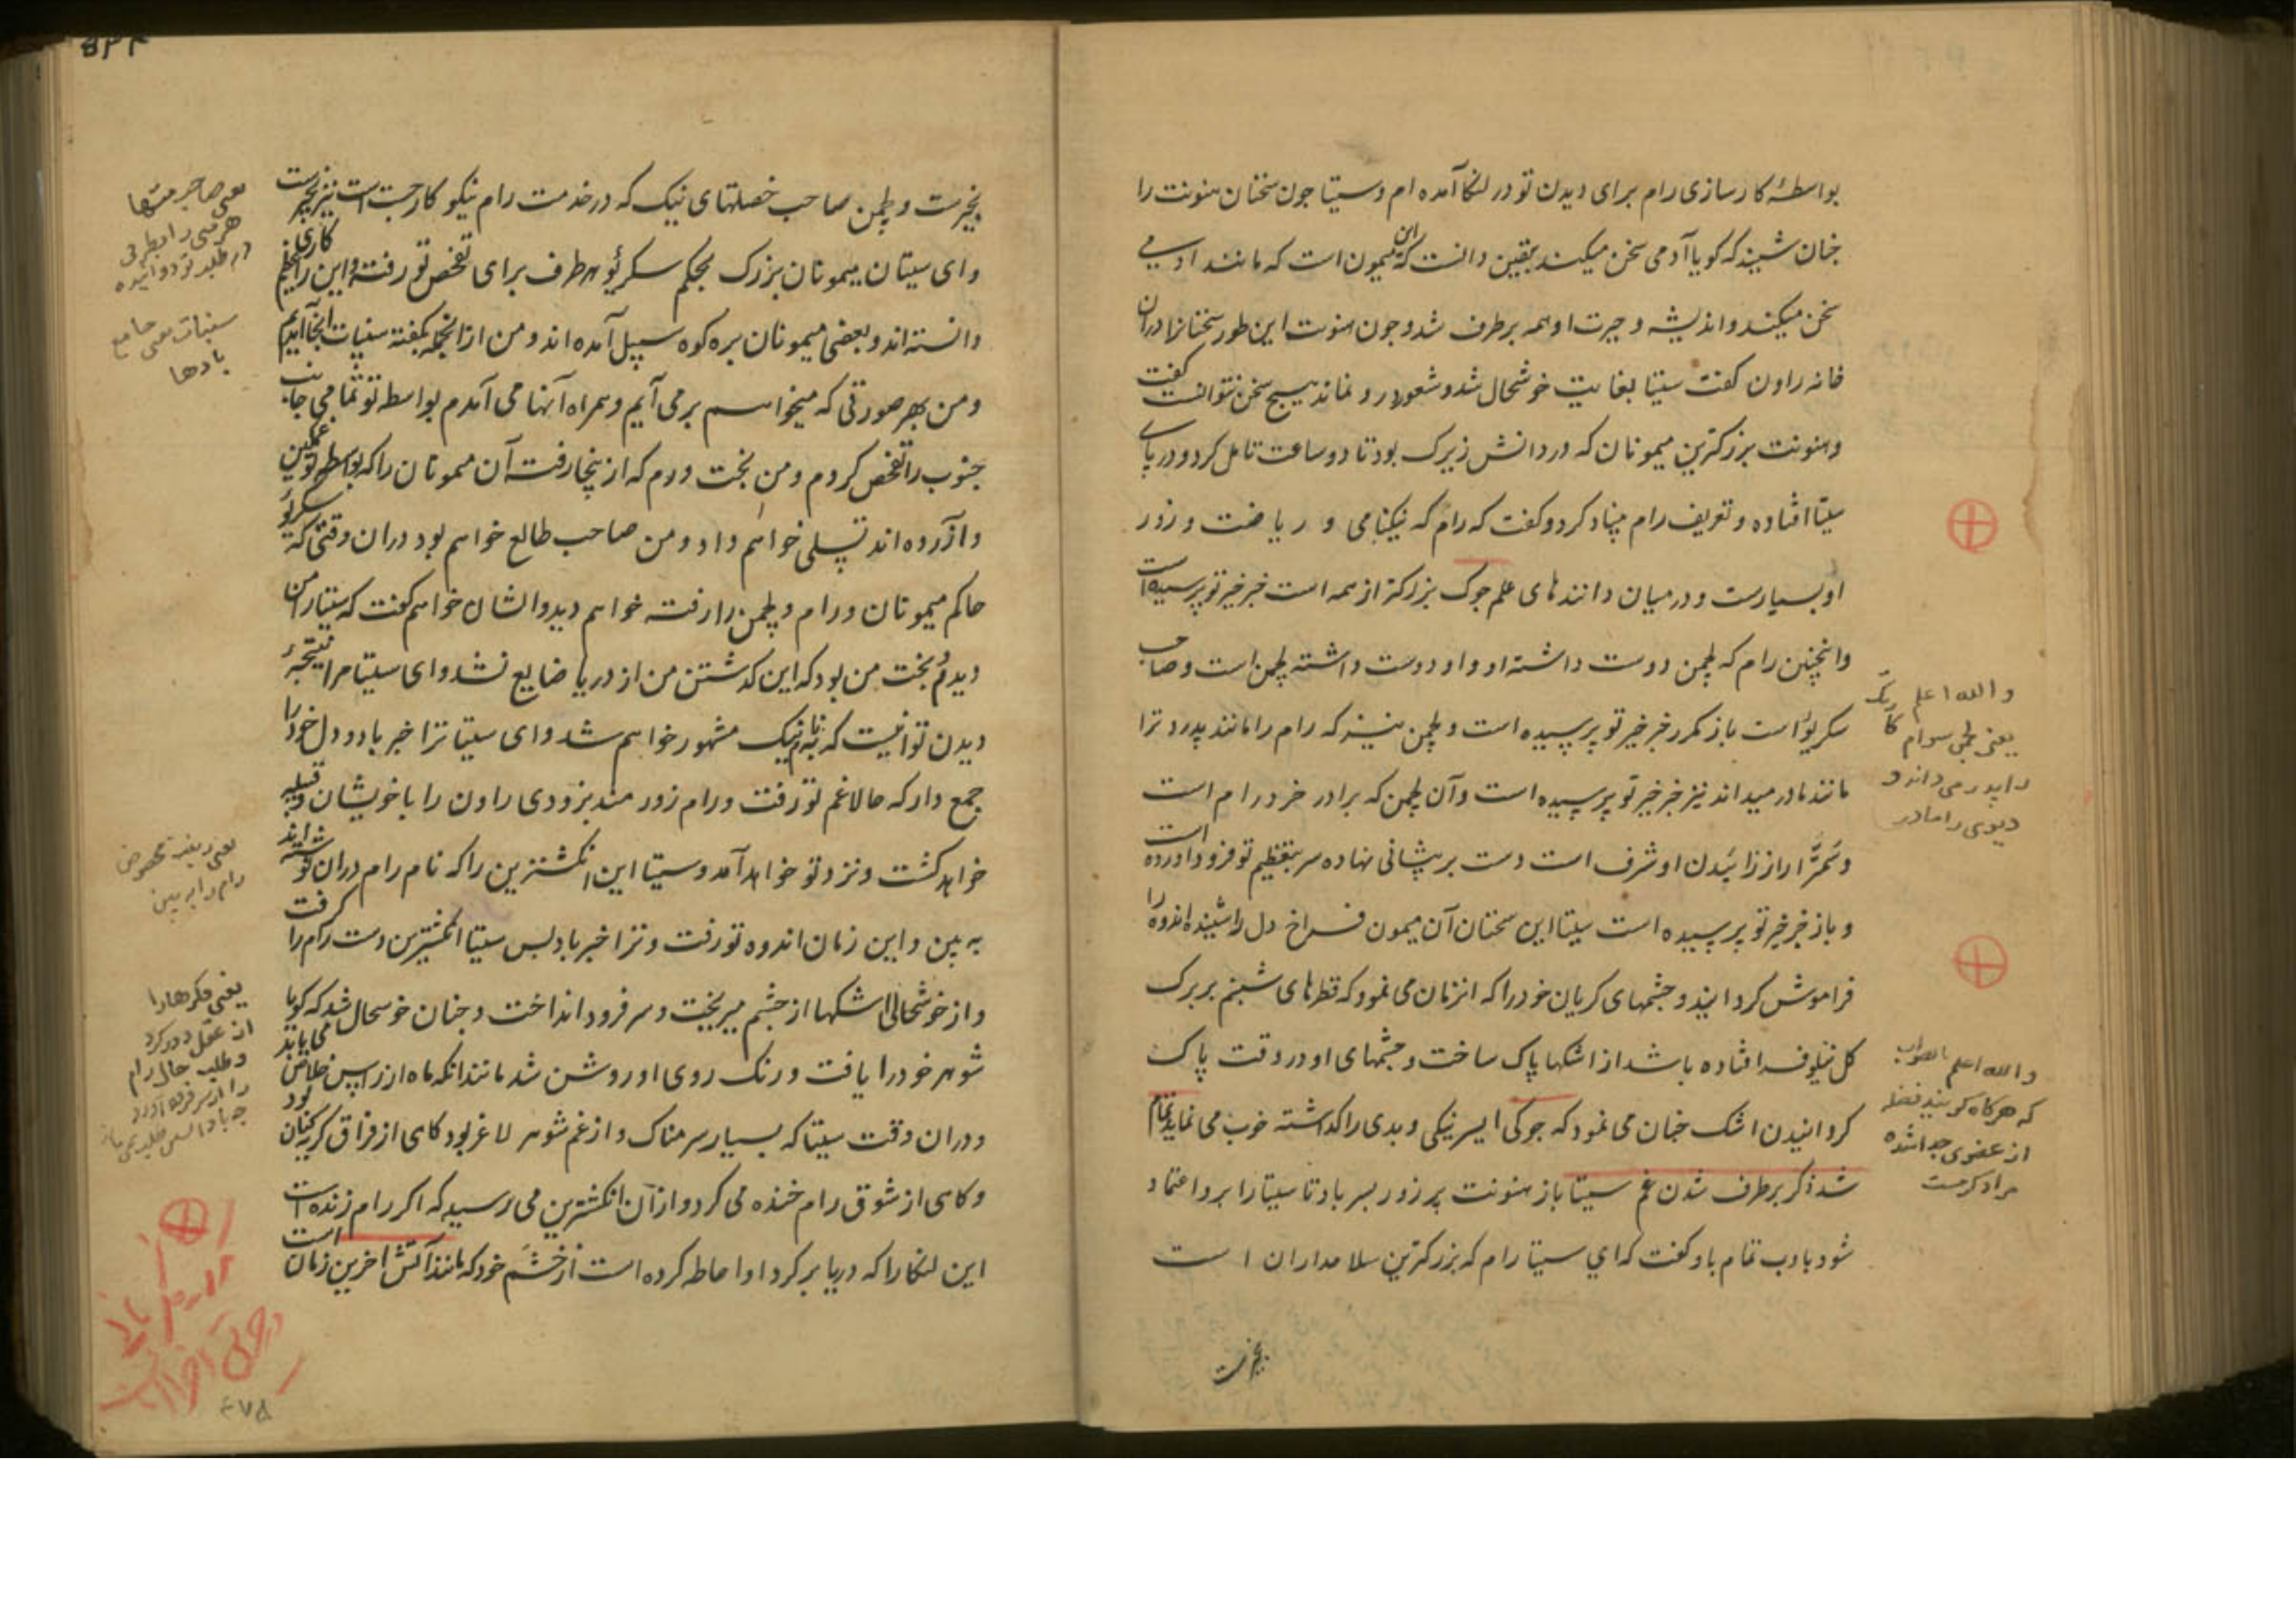 بواسطهٔ کارسازی رام برای دیدن تو در لنکا آمده ام و سیتا چون سخنان هنونت را
چنان شنید که گویا آدمی سخن میکند بقین دانست که این میمون است که مانند آدمی
سخن میکند و اندیشه و حیرت او همه برطرف شد و چون هنونت این طور سخنانرا دران
خانه راون گفت سیتا بغایت خوشحال شد و شعور درو نماند هیچ سخن نتوانست گفت
و هنونت بزرکترین میمونان که در دانش زیرک بود تا دو ساعت تامل کرد و در پای
سیتا افتاده و تعریف رام بنیاد کرد و گفت که رام که نیکنامی و ریاضت و زور
او بسیارست و در میان دانندهای علم جوک بزرکتر از همه است خبر خیر تو پرسیده است
و انچنین رام که لچمن دوست داشته او و او دوست داشته لچمن است و صاحب
سکریو است باز مکرر خبر خیر تو پرسیده است و لچمن نیز که رام را مانند پدر و ترا
مانند مادر میداند نیز خبر خیر تو پرسیده است و آن لچمن که برادر خرد رام است
و سمترا را از زائیدن او شرف است دست بر پیشانی نهاده سر بتعظیم تو فرود آورده است
و باز خبر خیر تو پرسیده است سیتا این سخنان آن میمون فراخ دل را شنیده اندوه را
فراموش کردانید و چشمهای کریان خود را که انزمان می نمود که قطرهای شبنم بر برک
کل نیلوفر افتاده باشد از اشکها پاک ساخت و چشمهای او در وقت پاک
کردانیدن اشک چنان می نمود که جوکی ایسر نیکی و بدی را کذاشته خوب می نماید تمام
شد ذکر برطرف شدن غم سیتا باز هنونت پر زور پسر باد تا سیتا را برو اعتماد
شود بادب تمام باو گفت که ای سیتا رام که بزرکترین سلامداران است
بخیرست
والله اعلم
یعنی لچمن رام
را پدر می داند و
دیوی را مادر
والله اعلم بالصواب
که هرکاه کریه
از عضوی جدا شده
مراد کرمست
بخیرست و لچمن صاحب خصلتهای نیک که در خدمت رام نیکو کار چست است نیز بخیرست
و ای سیتا آن میمونان بزرک بحکم سکریو هر طرف برای تفحص تو رفته و این را کاری عظیم
دانسته اند و بعضی میمونان بره کوه سپیل آمده اند و من ازانجمله بکفته سنپات اینجا آمدم
و من بهر صورتی که میخواهم برمی آیم و همراه آنها می آمدم بواسطه تو تمامی جانب
جنوب را تفحص کردم و من بخت ورم که از ینجا رفته آن میمونان را که بواسطه تو غمگین
و آزرده اند تسلی خواهم داد و من صاحب طالع خواهم بود دران وقتی که سکریو
حاکم میمونان و رام و لچمن را رفته خواهم دید و ایشان خواهم گفت که سیتا را من
دیدم و بخت من بود که این کذشتن من از دریا ضایع نشد و ای سیتا مرا نتیجهٔ
دیدن تو اینست که بنام نیک مشهور خواهم شد و ای سیتا ترا خبر باد و دل خود را
جمع دار که حالا غم تو رفت و رام زور مند بزودی راون را با خویشان و قبیله
خواهد کشت و نزد تو خواهد آمد و سیتا این انکشترین را که نام رام دران نوشته اند
به بین و این زمان اندوه تو رفت و ترا خبر باد پس سیتا انکشترین دست رام را گرفت
و از خوشحالی اشکها از چشم میریخت و سر فرود انداخت و چنان خوشحال شد که گویا
شوهر خود را یافت و رنک روی او روشن شد مانند انکه ماه از راس خلاص می یابد
و دران وقت سیتا که بسیار شرمناک و از غم شوهر لاغر بود کاهی از فراق کریه کنان بود
و کاهی از شوق رام خنده می کرد و از آن انکشترین می پرسید که اکر رام زنده است
این لنکا را که دریا بر کرد او احاطه کرده است از خشم خود که مانند آتش آخرین زمان است
یعنی صاحب
هر
در طلب تو دوانیده
سنپات یعنی جامع
بادها
یعنی
رام را ببین
یعنی فکرها را
از عقل دور کرد
و طلب حال رام
را از سر فرود آورد
۴۷۸